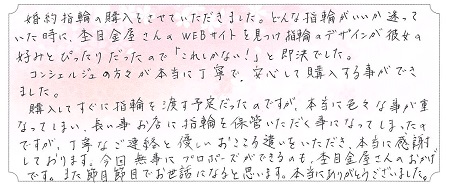 婚約指輪の購入をさせていただきました。どんな指輪がいいか迷って
いた時に、杢目金屋さんのWEBサイトを見つけ指輪のデザインが彼女の
好みとぴったりだったので「これしかない!」と即決でした。
コンシェルジュの方々が本当に丁寧で、安心して購入する事ができ
ました。
購入してすぐに指輪を渡す予定だったのですが、本当に色々な事が重
なってしまい、長い事お店に指輪を保管いただく事になってしまったの
ですが、丁寧なご連絡と優しいお心遣いをいただき、本当に感謝
しております。今回無事にプロポーズができるのも、杢目金屋さんのおかげ
です。また節目節目でお世話になると思います。本当にありがとうございました。